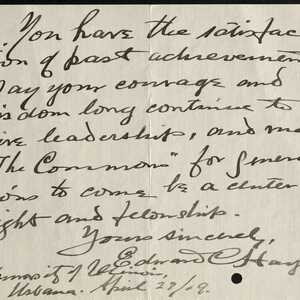 You have the satisfac
ion of past achievemen
ay your courage and
isdom long continue to
ive leadership, and ma
"The Commons" for gener
ions to come be a center
ight and felowship.
Yours sincerely,
Edward C. Hay
niversity of Illinois,
Urbana. April 29/19.